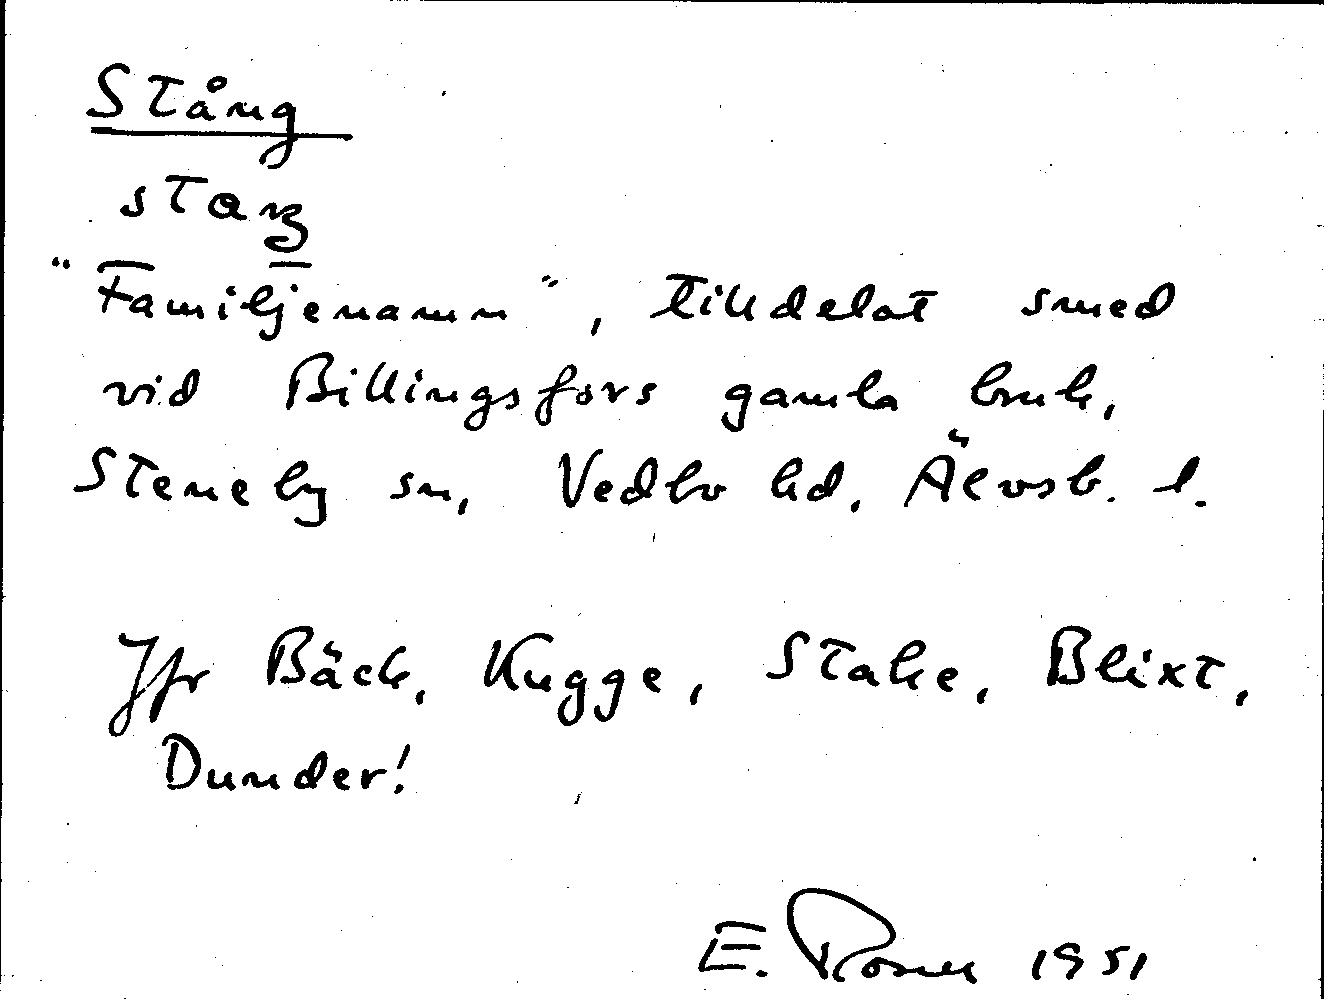 Stång
"Familjenamn", tilldelat smed
vid Billingsfors gamla bruk,
Steneby sn, Vedbo hd, Älvsb. l.
Jfr Bäck, Kugge, Stake, Blixt,
Dunder!
E. 1951